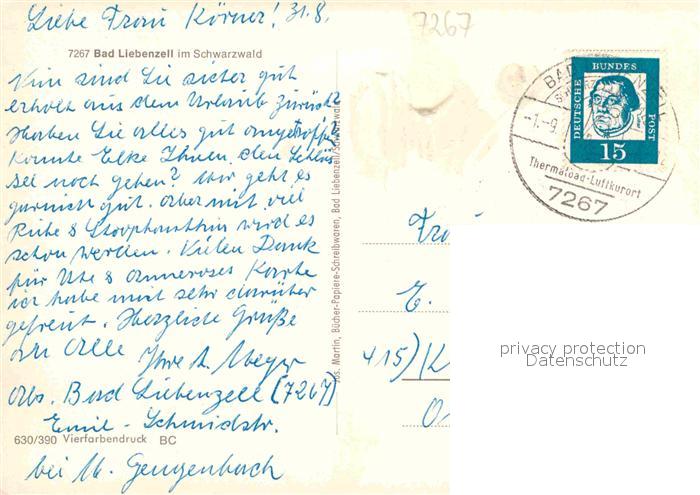 Liebe Frau Körner! 31.8.
7267
7267 Bad Liebenzell im Schwarzwald
Nun sind Sie sicher gut
erholt aus dem Urlaub zurück?
Haben Sie alles gut angetroffen?
Konnte Elke Ihnen den Schlüs
sel noch geben? Mir geht es
garnicht gut. Aber mit viel
Ruhe & Strophanthin wird es
schon werden. Vielen Dank
für Ute & Anneroses Karte
ich habe mich sehr darüber
gefreut. Herzliche Grüße
an Alle Ihre A. Meyer
Abs. Bad Liebenzell (7267)
Emil-Schmidstr.
630/390 Vierfarbendruck BC
bei M. Gengenbach
Jos. Martin, Bücher-Papiere-Schreibwaren, Bad Liebenzell/Schwarzwald
DEUTSCHE BUNDES POST
15
BAD
-1.-9.
Thermalbad-Luftkurort
7267
Frau
E.
415) K
privacy protection
Datenschutz